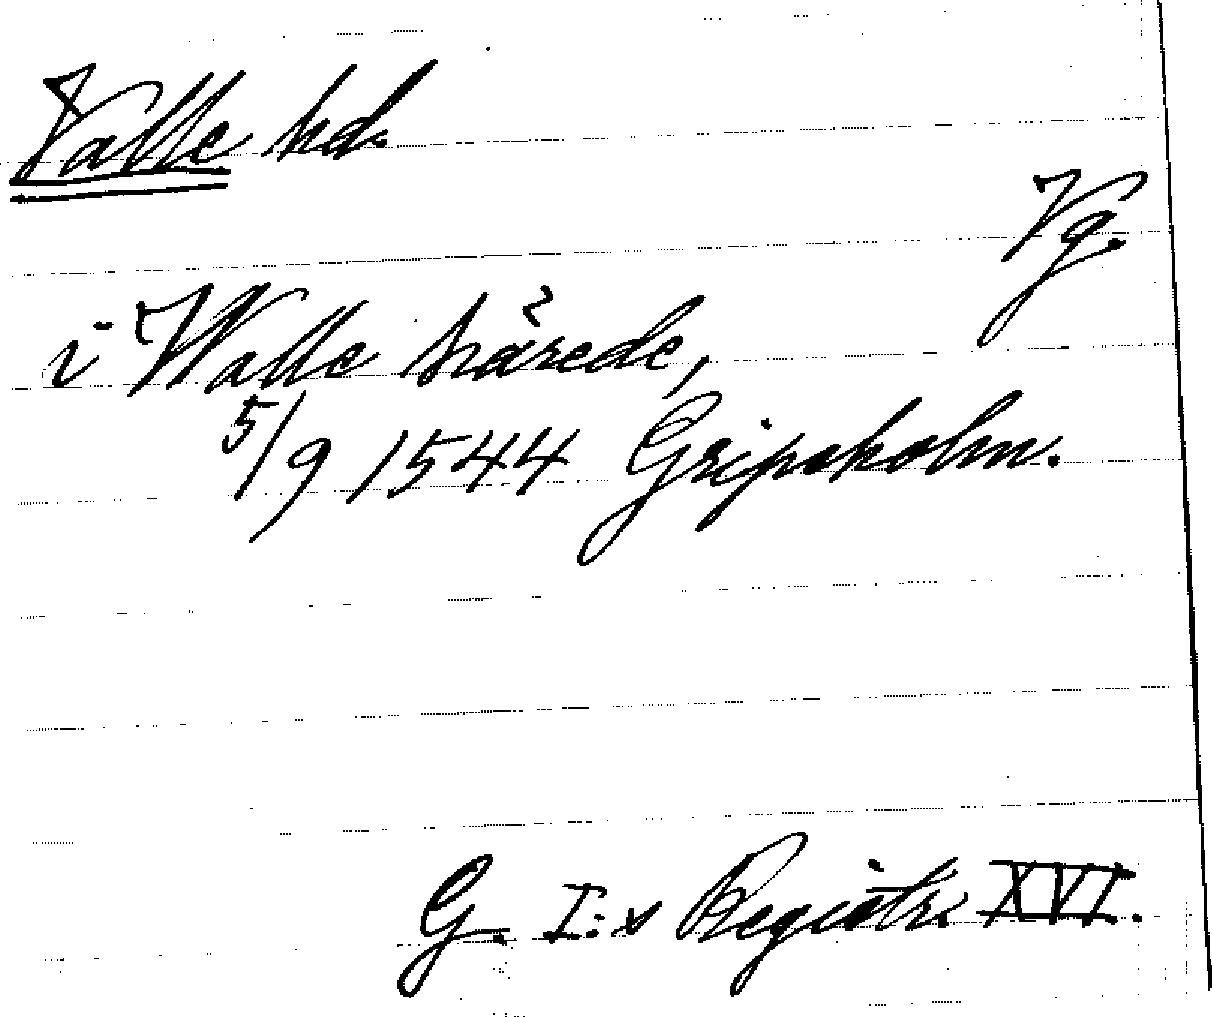 Valle hd.
Vg.
i Walle härede,
5/9 1544 Gripsholm.
G. I:s Registr. XVI.